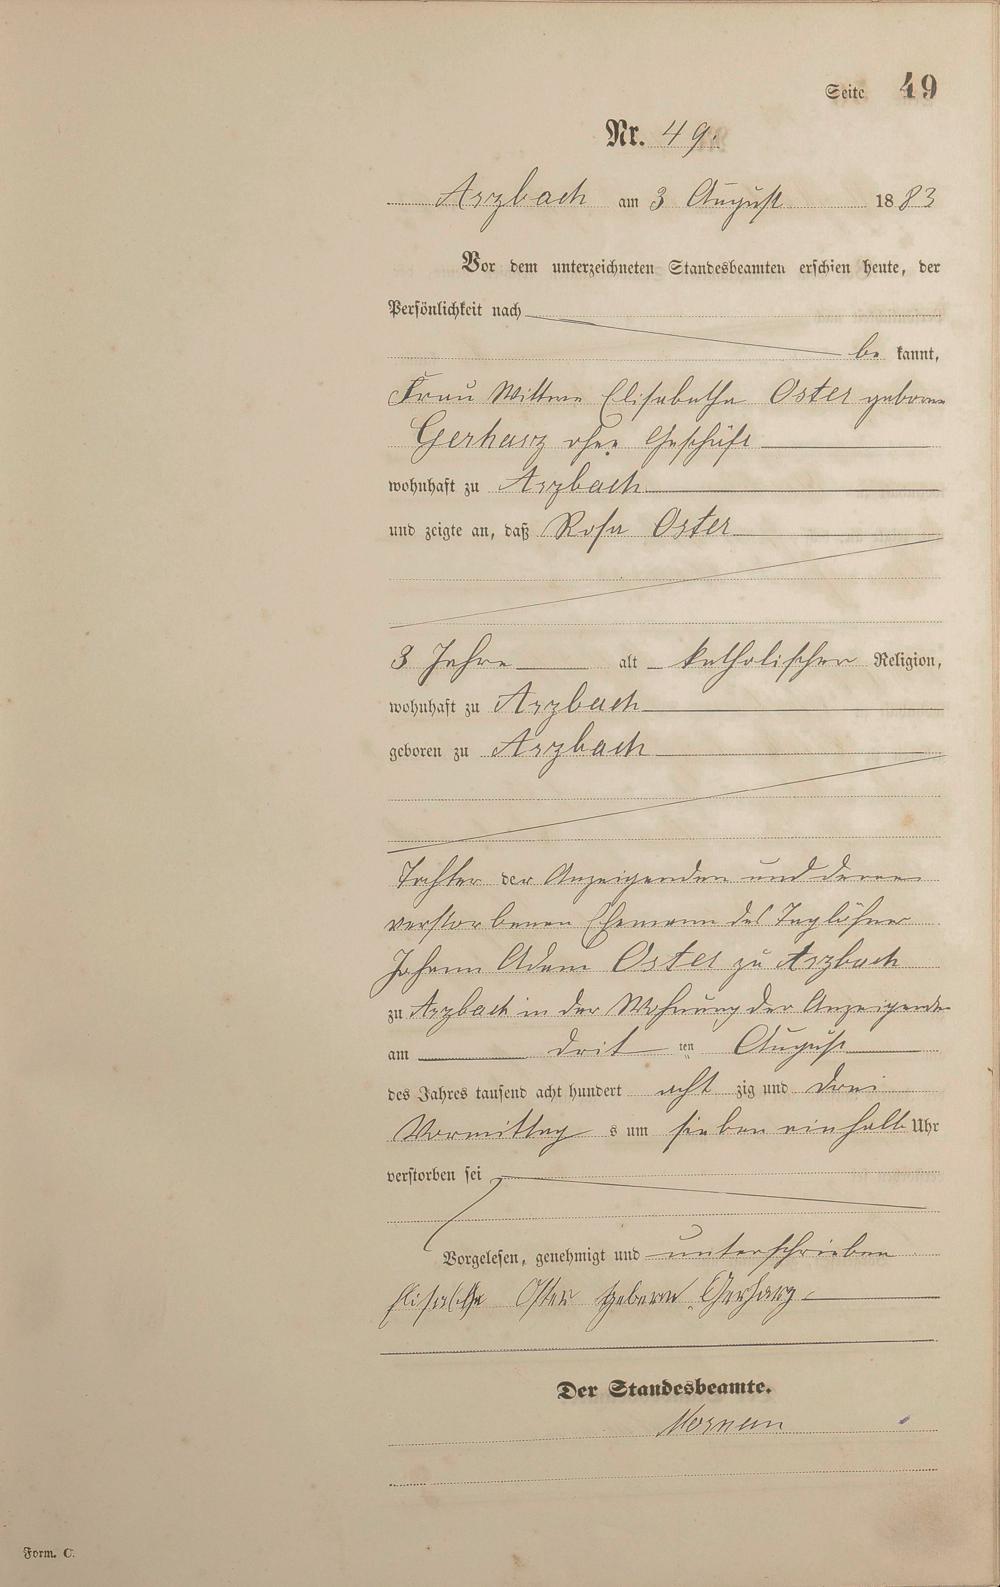 Seite 49
Nr. 49.
Arzbach am 3 August 1883
Vor dem unterzeichneten Standesbeamten erschien heute, der
Persönlichkeit nach
be kannt,
Frau Wittwe Elisabetha Oster geborene
Gerharz ohne Geschäft
wohnhaft zu Arzbach
und zeigte an, daß Rosa Oster
3 Jahre alt katholischer Religion,
wohnhaft zu Arzbach
geboren zu Arzbach
Tochter der Anzeigenden und deren
verstorbenen Ehemann des Taglöhner
Johann Adam Oster zu Arzbach
zu Arzbach in der Wohnung der Anzeigende
am dritten August
des Jahres tausend acht hundert acht zig und drei
Vormittag s um sieben einhalb Uhr
verstorben sei
Vorgelesen, genehmigt und unterschrieben
Elisabetha Oster geborene Gerharz
Der Standesbeamte.
Form. C.